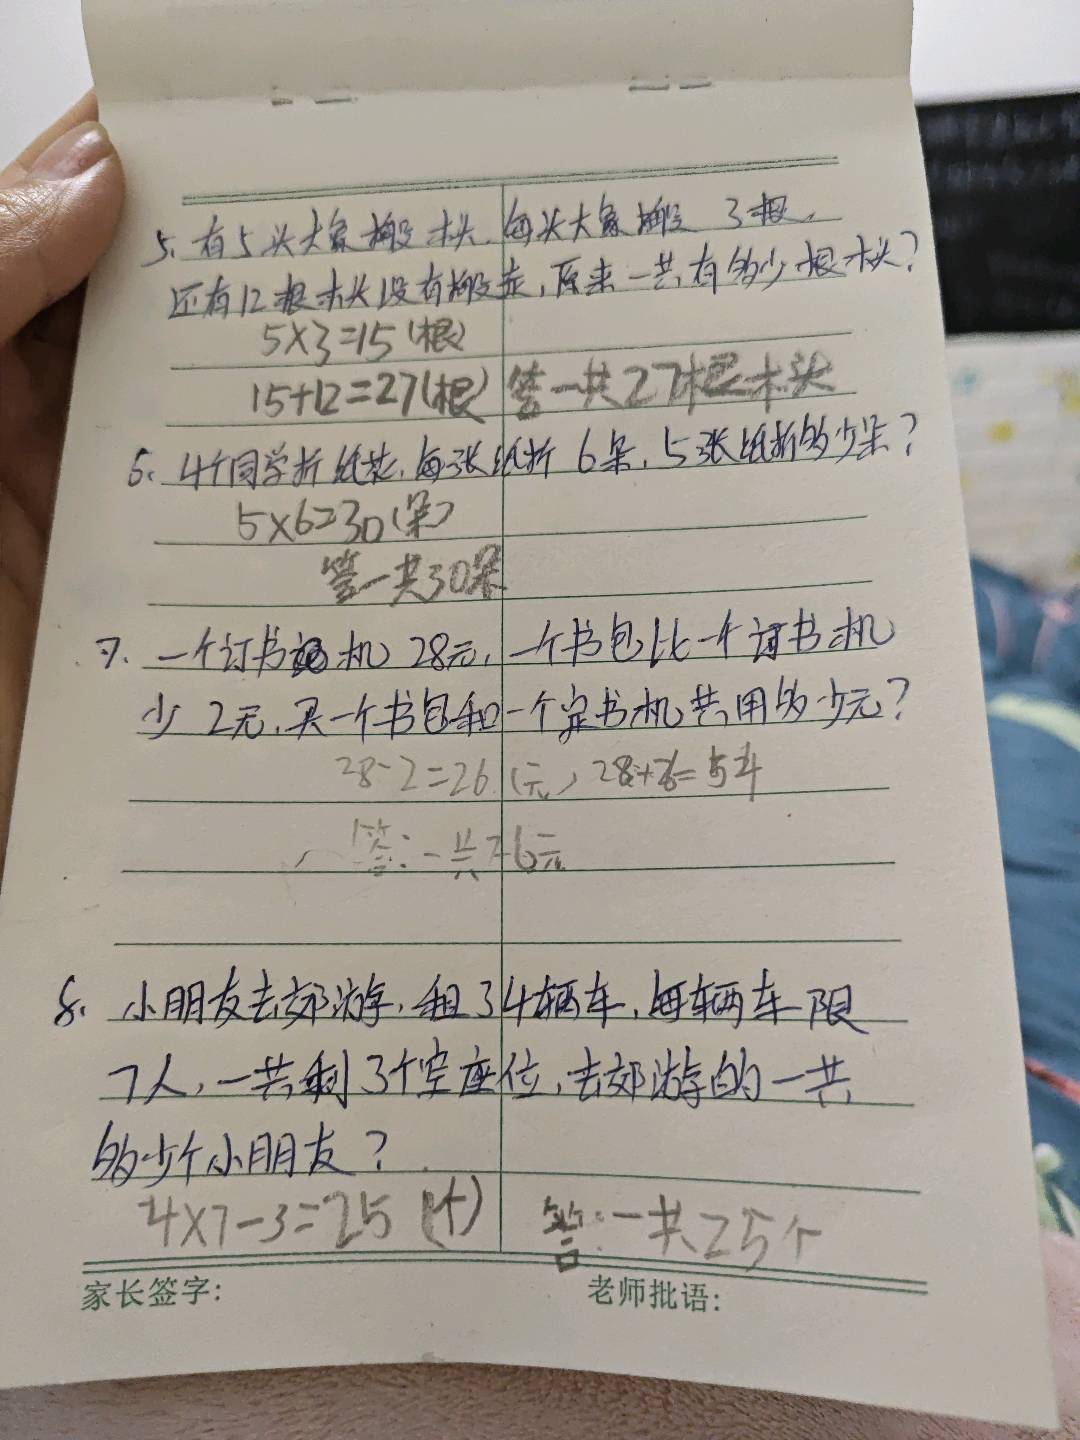 5、有5头大象搬木头,每头大象搬 3根,
还有12根木头没有搬走,原来一共有多少根木头?
5×3=15(根)
15+12=27(根) 答一共27根木头
6、4个同学折纸花,每张纸折 6朵,5张纸折多少朵?
5×6=30(朵)
答一共30朵
7、一个订书机 28元,一个书包比一个订书机
少 2元,买一个书包和一个定书机共用多少元?
28-2=26(元) 28+26=54
答:一共 元
8、小朋友去郊游,租了4辆车,每辆车限
7人,一共剩3个空座位,去郊游的一共
多少个小朋友?
4×7-3=25(个) 答:一共25个
家长签字: 老师批语: